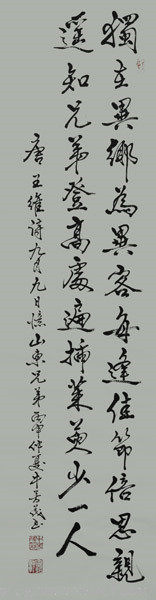 獨在異鄉為異客每逢佳節倍思親
遥知兄弟登高處遍插茱萸少一人
唐王維詩九月九日憶山東兄弟丙申仲夏牛